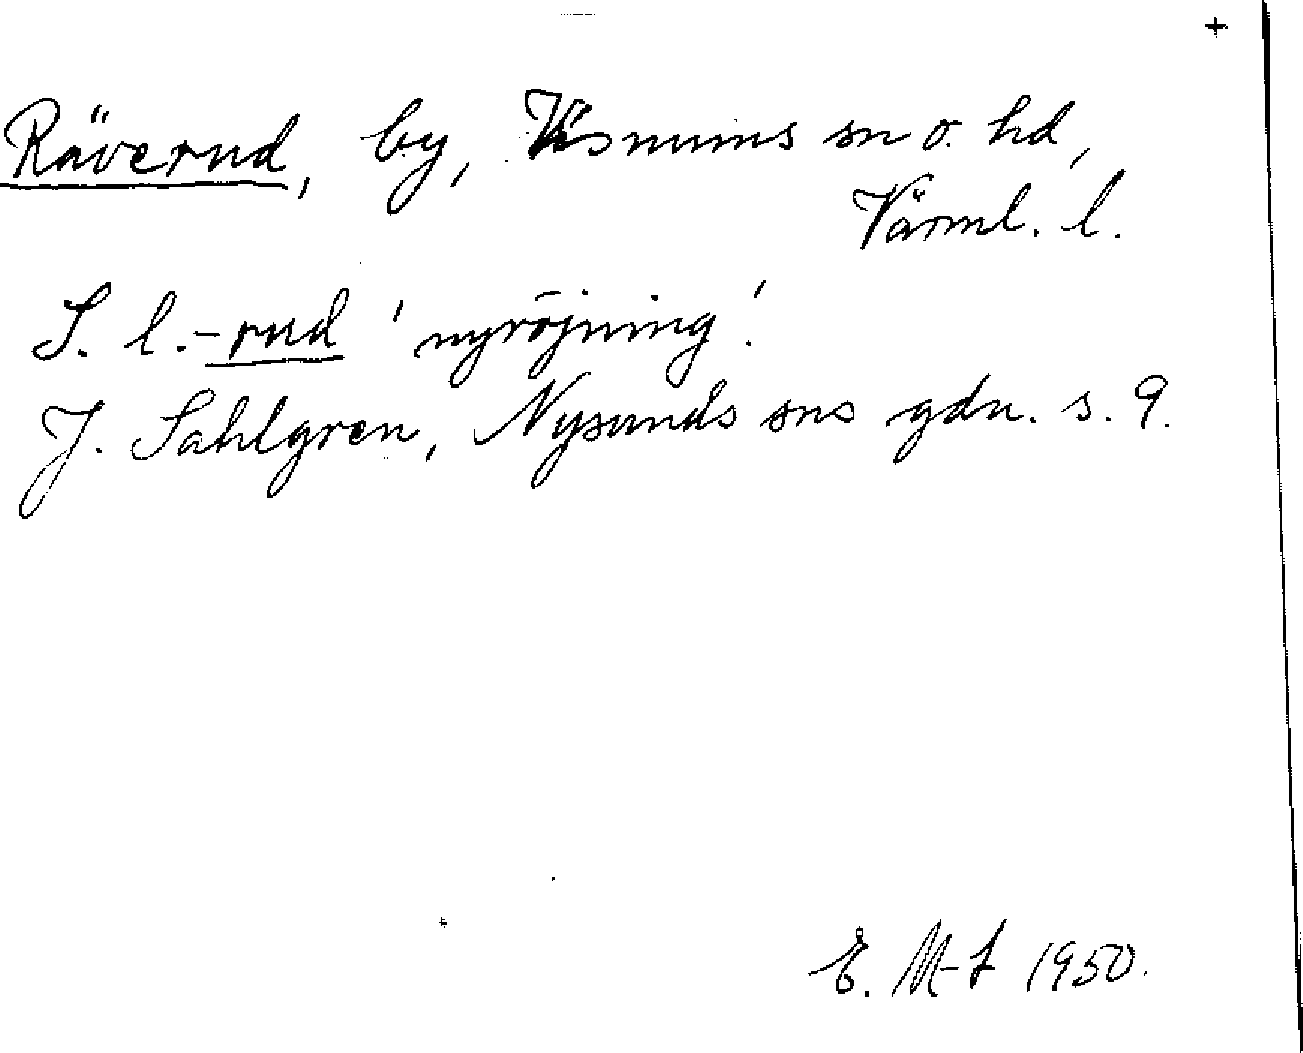 Räverud, by, Visnums sn o. hd,
Värml. l.
S. l. -rud 'nyröjning'.
J. Sahlgren, Nysunds sns gdn. s. 9.
E. M-L 1950.